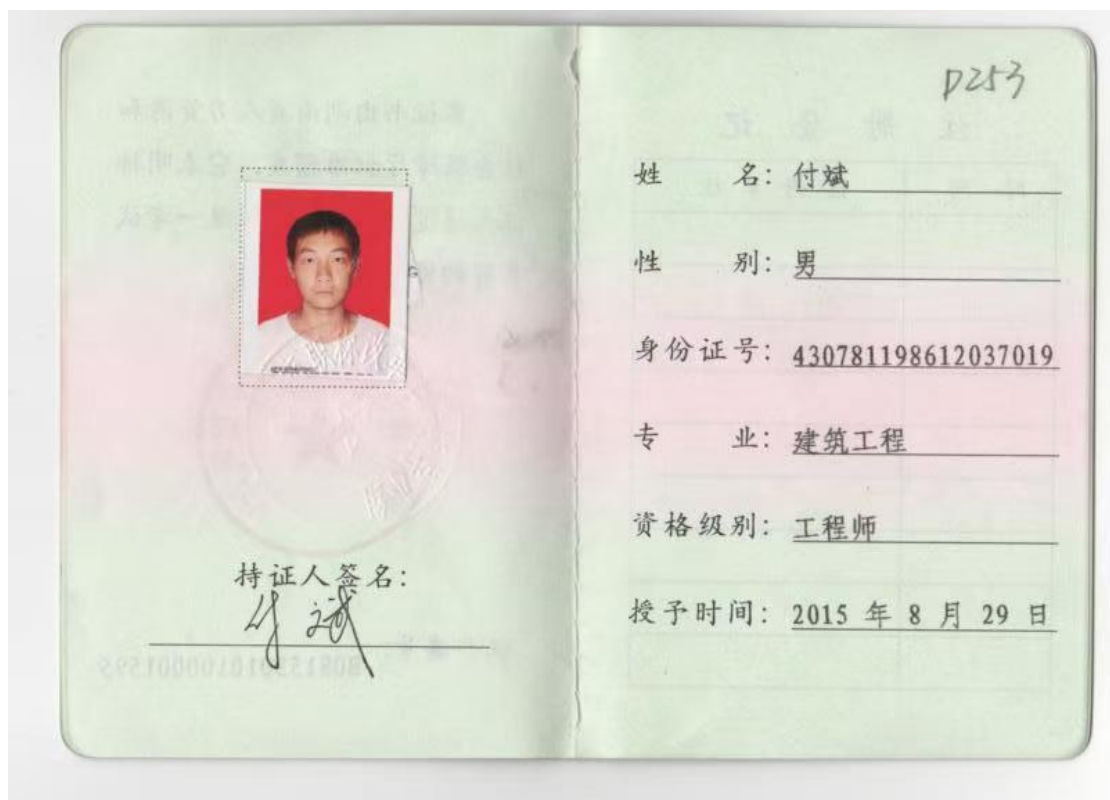 持证人签名：
付斌
P253
姓 名：付斌
性 别：男
身份证号：430781198612037019
专 业：建筑工程
资格级别：工程师
授予时间：2015 年 8 月 29 日